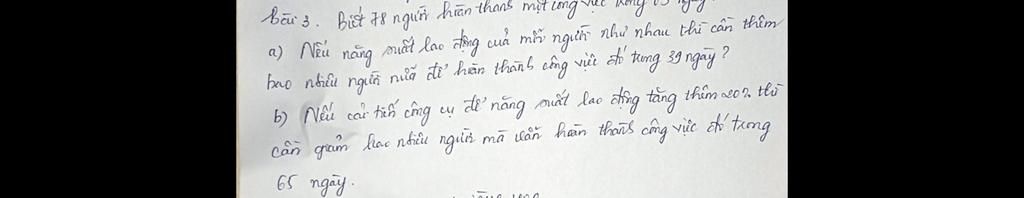 Bài 3. Biết 78 người hoàn thành một công việc trong 65 ngày
a) Nếu năng suất lao động của mỗi người như nhau thì cần thêm
bao nhiêu người nữa để hoàn thành công việc đó trong 39 ngày?
b) Nếu cải tiến công cụ để năng suất lao động tăng thêm 20% thì
cần giảm bao nhiêu người mà vẫn hoàn thành công việc đó trong
65 ngày.